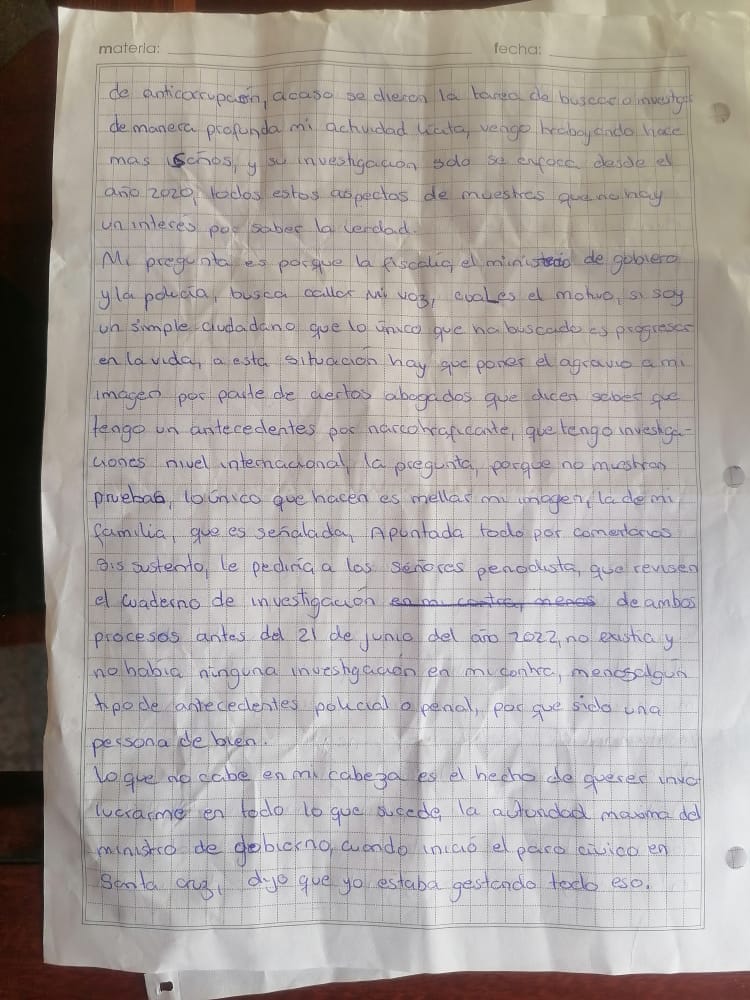 materia: fecha:
de anticorrupación, acaso se dieron la tarea de buscar o investigar
de manera profunda mi actividad licita, vengo trabajando hace
mas 15 años, y su investigación solo se enfoca desde el
año 2020, todos estos aspectos de muestras que no hay
un interés por saber la verdad.
Mi pregunta es porque la fiscalia, el ministerio de gobiero
y la policía, busca callar mi voz, cual es el motivo, si soy
un simple ciudadano que lo único que ha buscado es progresar
en la vida, a esta situación hay que poner el agravio a mi
imagen por parte de ciertos abogados que dicen saber que
tengo un antecedentes por narcotraficante, que tengo investiga-
ciones nivel internacional, la pregunta, porque no muestran
pruebas, lo único que hacen es mellar mi imagen, la de mi
familia, que es señalada, Apuntada todo por comentarios
sis sustento, le pediría a los señores periodista, que revisen
el cuaderno de investigación en mi contra, menos de ambos
procesos antes del 21 de junio del año 2022, no existia y
no había ninguna investigación en mi contra, menos algún
tipo de antecedentes policial o penal, por que sido una
persona de bien.
Lo que no cabe en mi cabeza es el hecho de querer invo
lucrarme en todo lo que sucede, la autoridad maxima del
ministro de gobierno, cuando inició el paro cívico en
Santa cruz, dijo que yo estaba gestando todo eso.